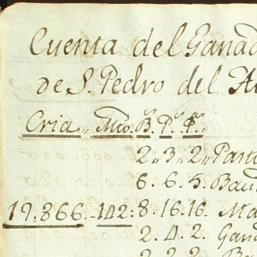 Cuenta del Ganad
de S. Pedro del A
Cria,, Mtō. B.ˢ P.ˢ P.ˢ
2,,3,,2,,Part
6. 6. 5. Bau
19.866. 142: 8. 16.16. Ma
2. 4. 2. Gan
2. 2. 2. Ba